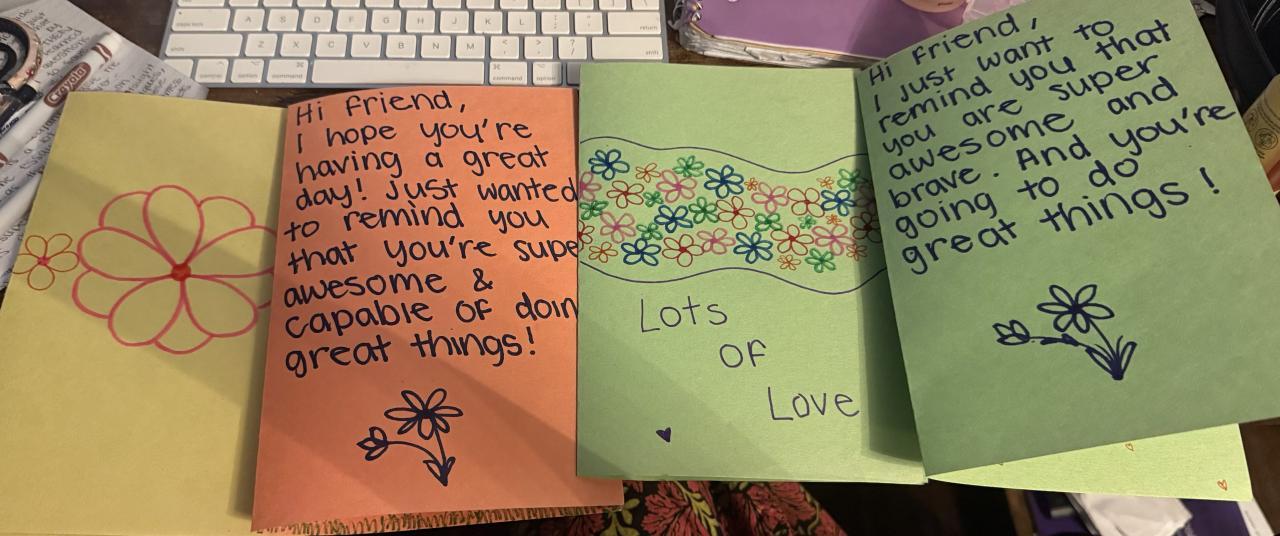 Hi Friend,
I hope you're
having a great
day! Just wanted
to remind you
that you're supe
awesome &
capable of doin
great things!
Lots
of
Love
Hi Friend,
I just want to
remind you that
you are super
awesome and
brave. And you're
going to do
great things!
Crayola
A S D F G H J K L
return
Z X C V B N M
shift
command
command
option